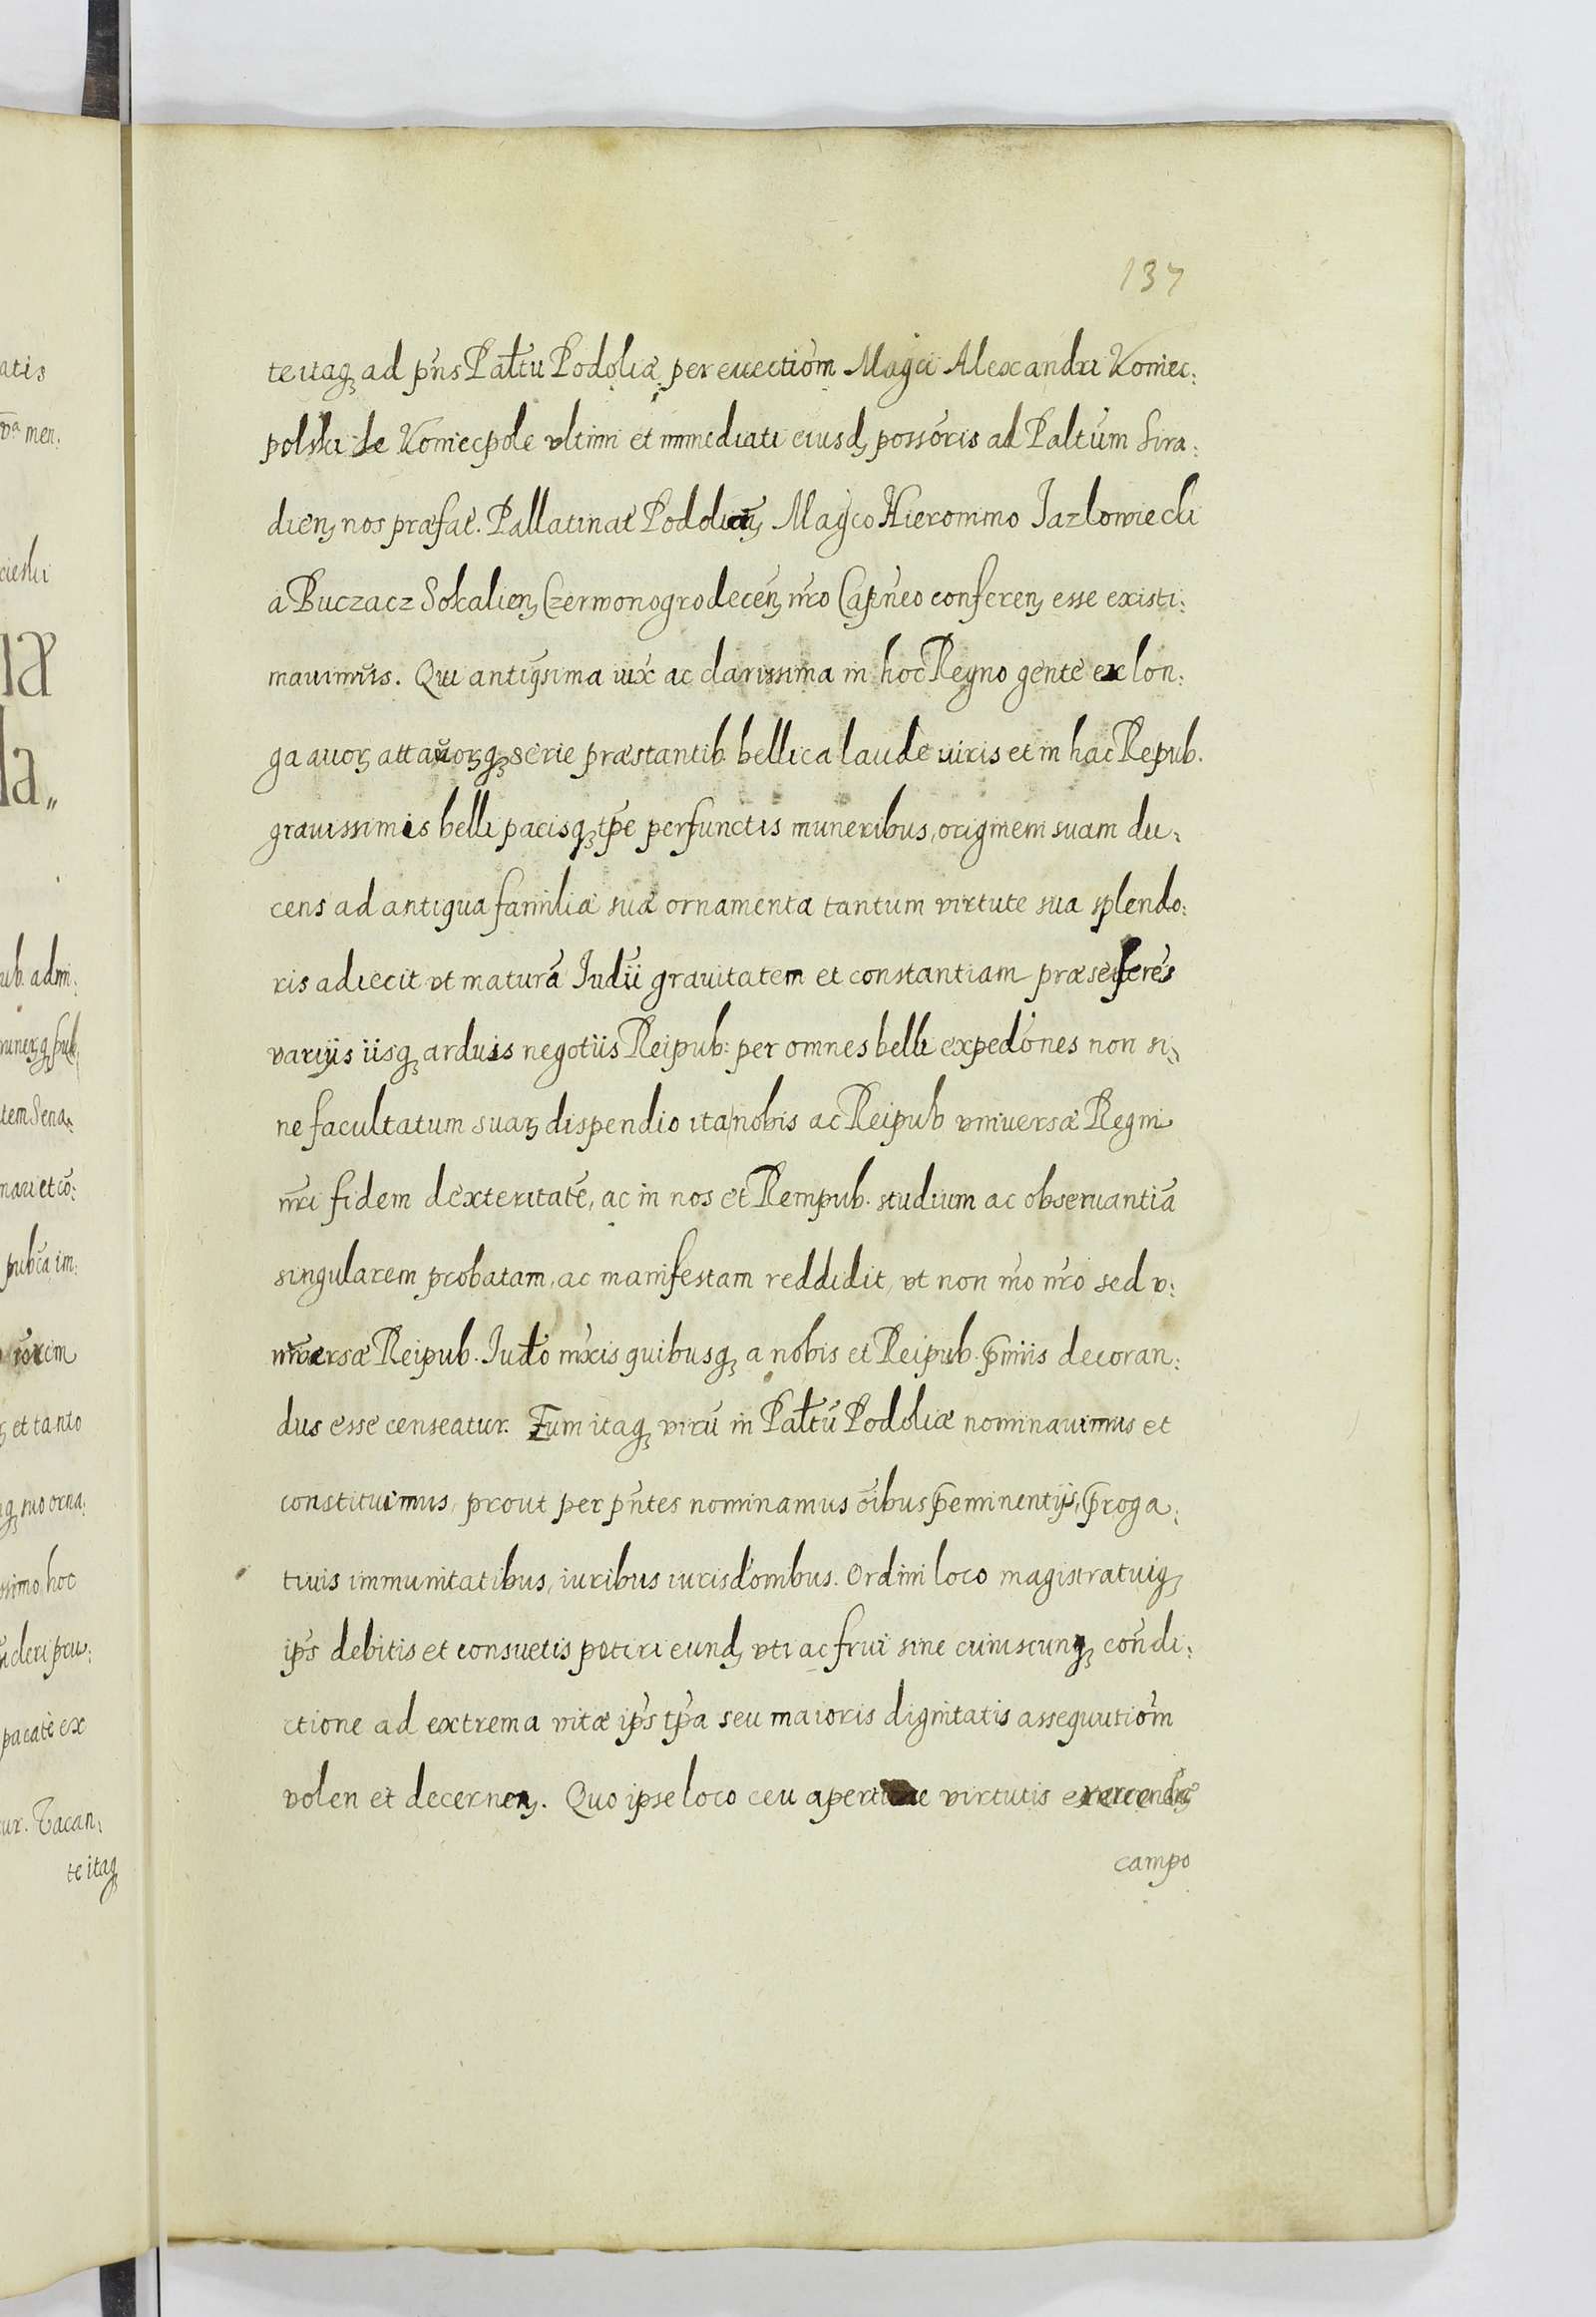 137
te itaq₃ ad pn̄s Palt̄u Podoliæ per euectiōm Mag͠ci Alexandri Koniec:
polski de Koniecpole vltimi et immediati eiusd₃ possōris ad Palt̄um Sira:
dien₃ nos præfat̄. Pallatinat̄ Podolien₃ Mag͠co Hieronimo Jazlowiecki
a Buczacz Sokalien₃ Czerwonogrodecen₃ nr̄o Capn̄eo conferen₃ esse existi:
mauimus. Qui antiq̄sima iux̄ ac clarissima in hoc Regno gente ex lon:
ga auor₃ attauor₃q₃ serie præstantib. bellica laude viris et in hac Repub.
grauissimis belli pacisq₃ tp̄e perfunctis muneribus, originem suam du:
cens ad antiqua familiæ suæ ornamenta tantum virtute sua splendo:
ris adiecit vt maturā Judīi grauitatem et constantiam præ se ferēs
varijs iisq₃ arduis negotiis Reipub: per omnes belli expedōnes non si:
ne facultatum suar₃ dispendio ita nobis ac Reipub vniuersæ Regni
nr̄i fidem dexteritatē, ac in nos et Rempub. studium ac obseruantiā
singularem probatam, ac manifestam reddidit, vt non mō nr̄o sed v:
niuersæ Reipub. Judt̄o mx̄is quibusq₃ a nobis et Reipub. p̄miis decoran:
dus esse censeatur. Eum itaq₃ virū in Palt̄ū Podoliæ nominauimus et
constituimus, prout per pn̄tes nominamus oībus p̄eminentijs, p̄roga:
tiuis immunitatibus, iuribus iurisdōnibus. Ordini loco magistratuiq₃
ip̄s debitis et consuetis potiri eund₃ vti ac frui sine cuiuscunq₃ con̄di:
ctione ad extrema vitæ ip̄s tp̄a seu maioris dignitatis assequutiōm
volen et decernen₃. Quo ipse loco ceu virtutis exercendæ
campo